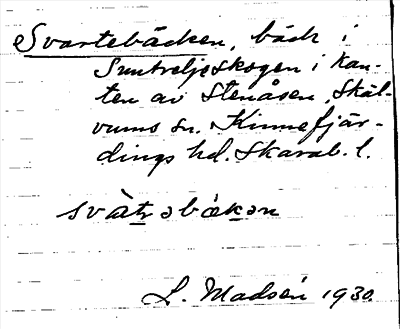 Svartebäcken, bäck i
Suntreljeskogen i kan-
ten av Stenåsen, Skäl-
vums sn. Kinnefjär-
dings hd. Skarab. l.
svàtrəbǽkən
L. Madsén 1930.